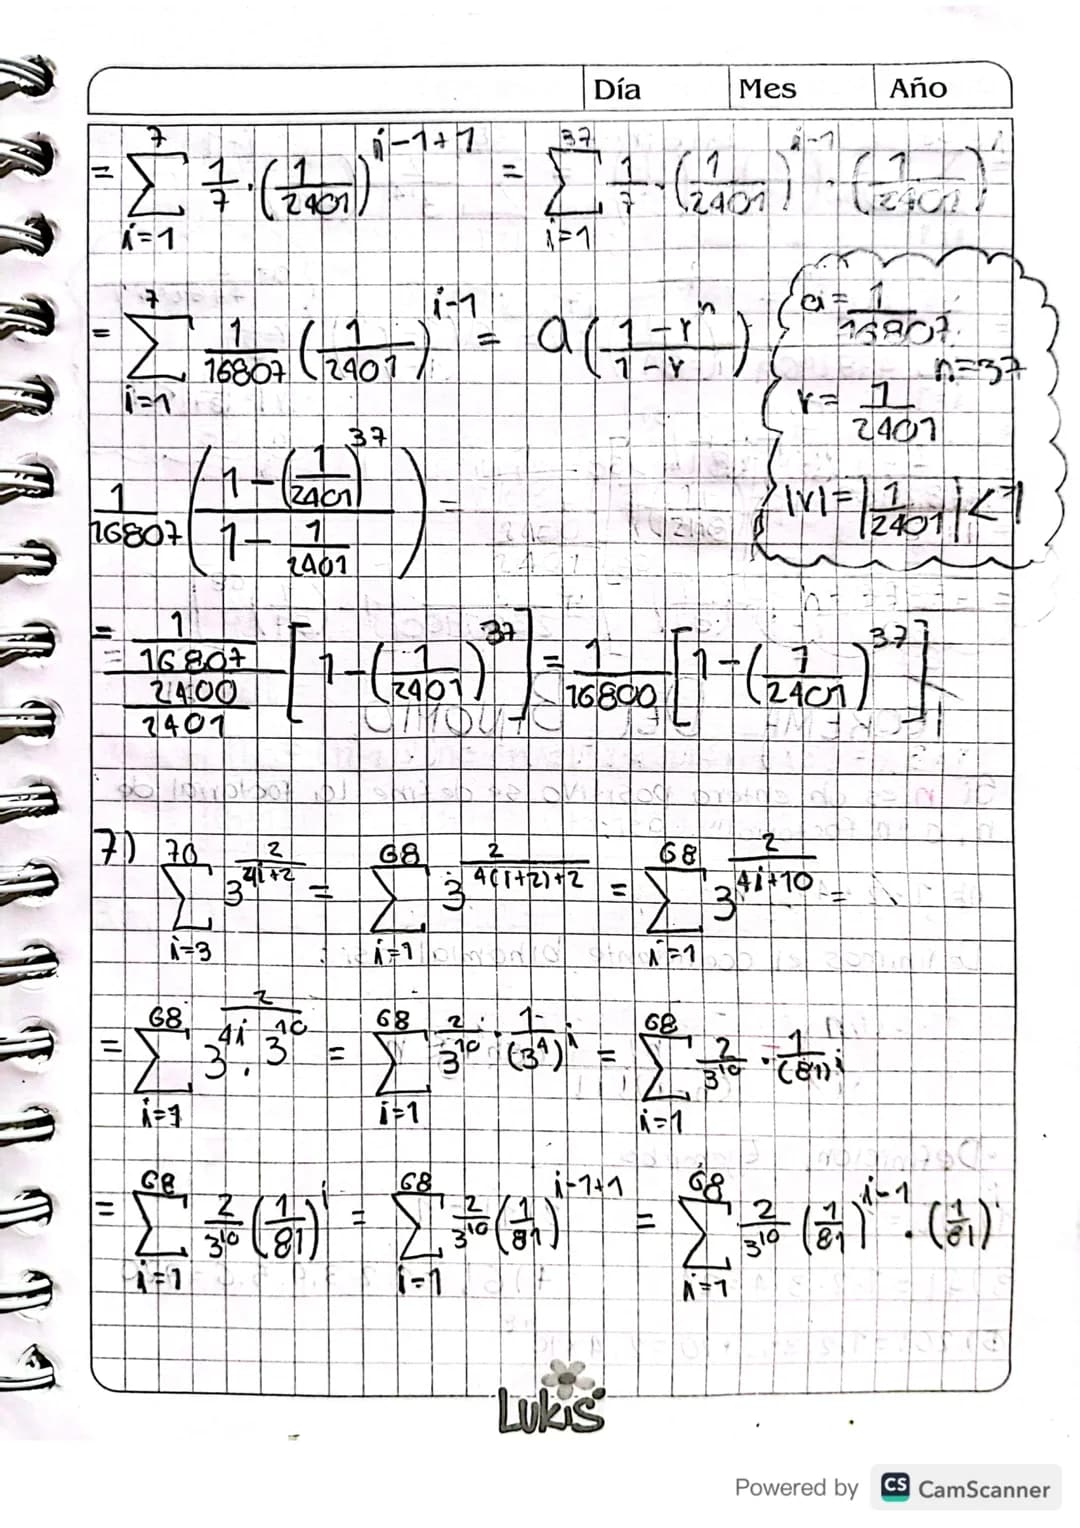 Día Mes Año
= \sum_{i=1}^{7} \frac{1}{7} \cdot (\frac{1}{2401})^{i-1+1} = \sum_{i=1}^{37} \frac{1}{7} \cdot (\frac{1}{2401})^{i-1} \cdot (\frac{1}{2401})
= \sum_{i=1}^{7} \frac{1}{16807} (\frac{1}{2401})^{i-1} = a(\frac{1-r^n}{1-r})
a = \frac{1}{16807}
n=37
r = \frac{1}{2401}
|r| = |\frac{1}{2401}| < 1
\frac{1}{16807} (\frac{1-(\frac{1}{2401})^{37}}{1-\frac{1}{2401}}) =
= \frac{\frac{1}{16807}}{\frac{2400}{2401}} [1-(\frac{1}{2401})^{37}] = \frac{1}{16800} [1-(\frac{1}{2401})^{37}]
7) \sum_{i=3}^{70} 3^{\frac{2}{4i+2}} = \sum_{i=1}^{68} 3^{\frac{2}{4(i+2)+2}} = \sum_{i=1}^{68} 3^{\frac{2}{4i+10}} =
= \sum_{i=1}^{68} \frac{2}{3^{4i} \cdot 3^{10}} = \sum_{i=1}^{68} \frac{2}{3^{10}} \cdot \frac{1}{(3^4)^i} = \sum_{i=1}^{68} \frac{2}{3^{10}} \cdot \frac{1}{(81)^i}
= \sum_{i=1}^{68} \frac{2}{3^{10}} (\frac{1}{81})^i = \sum_{i=1}^{68} \frac{2}{3^{10}} (\frac{1}{81})^{i-1+1} = \sum_{i=1}^{68} \frac{2}{3^{10}} (\frac{1}{81})^{i-1} \cdot (\frac{1}{81})
Lukis
Powered by CS CamScanner